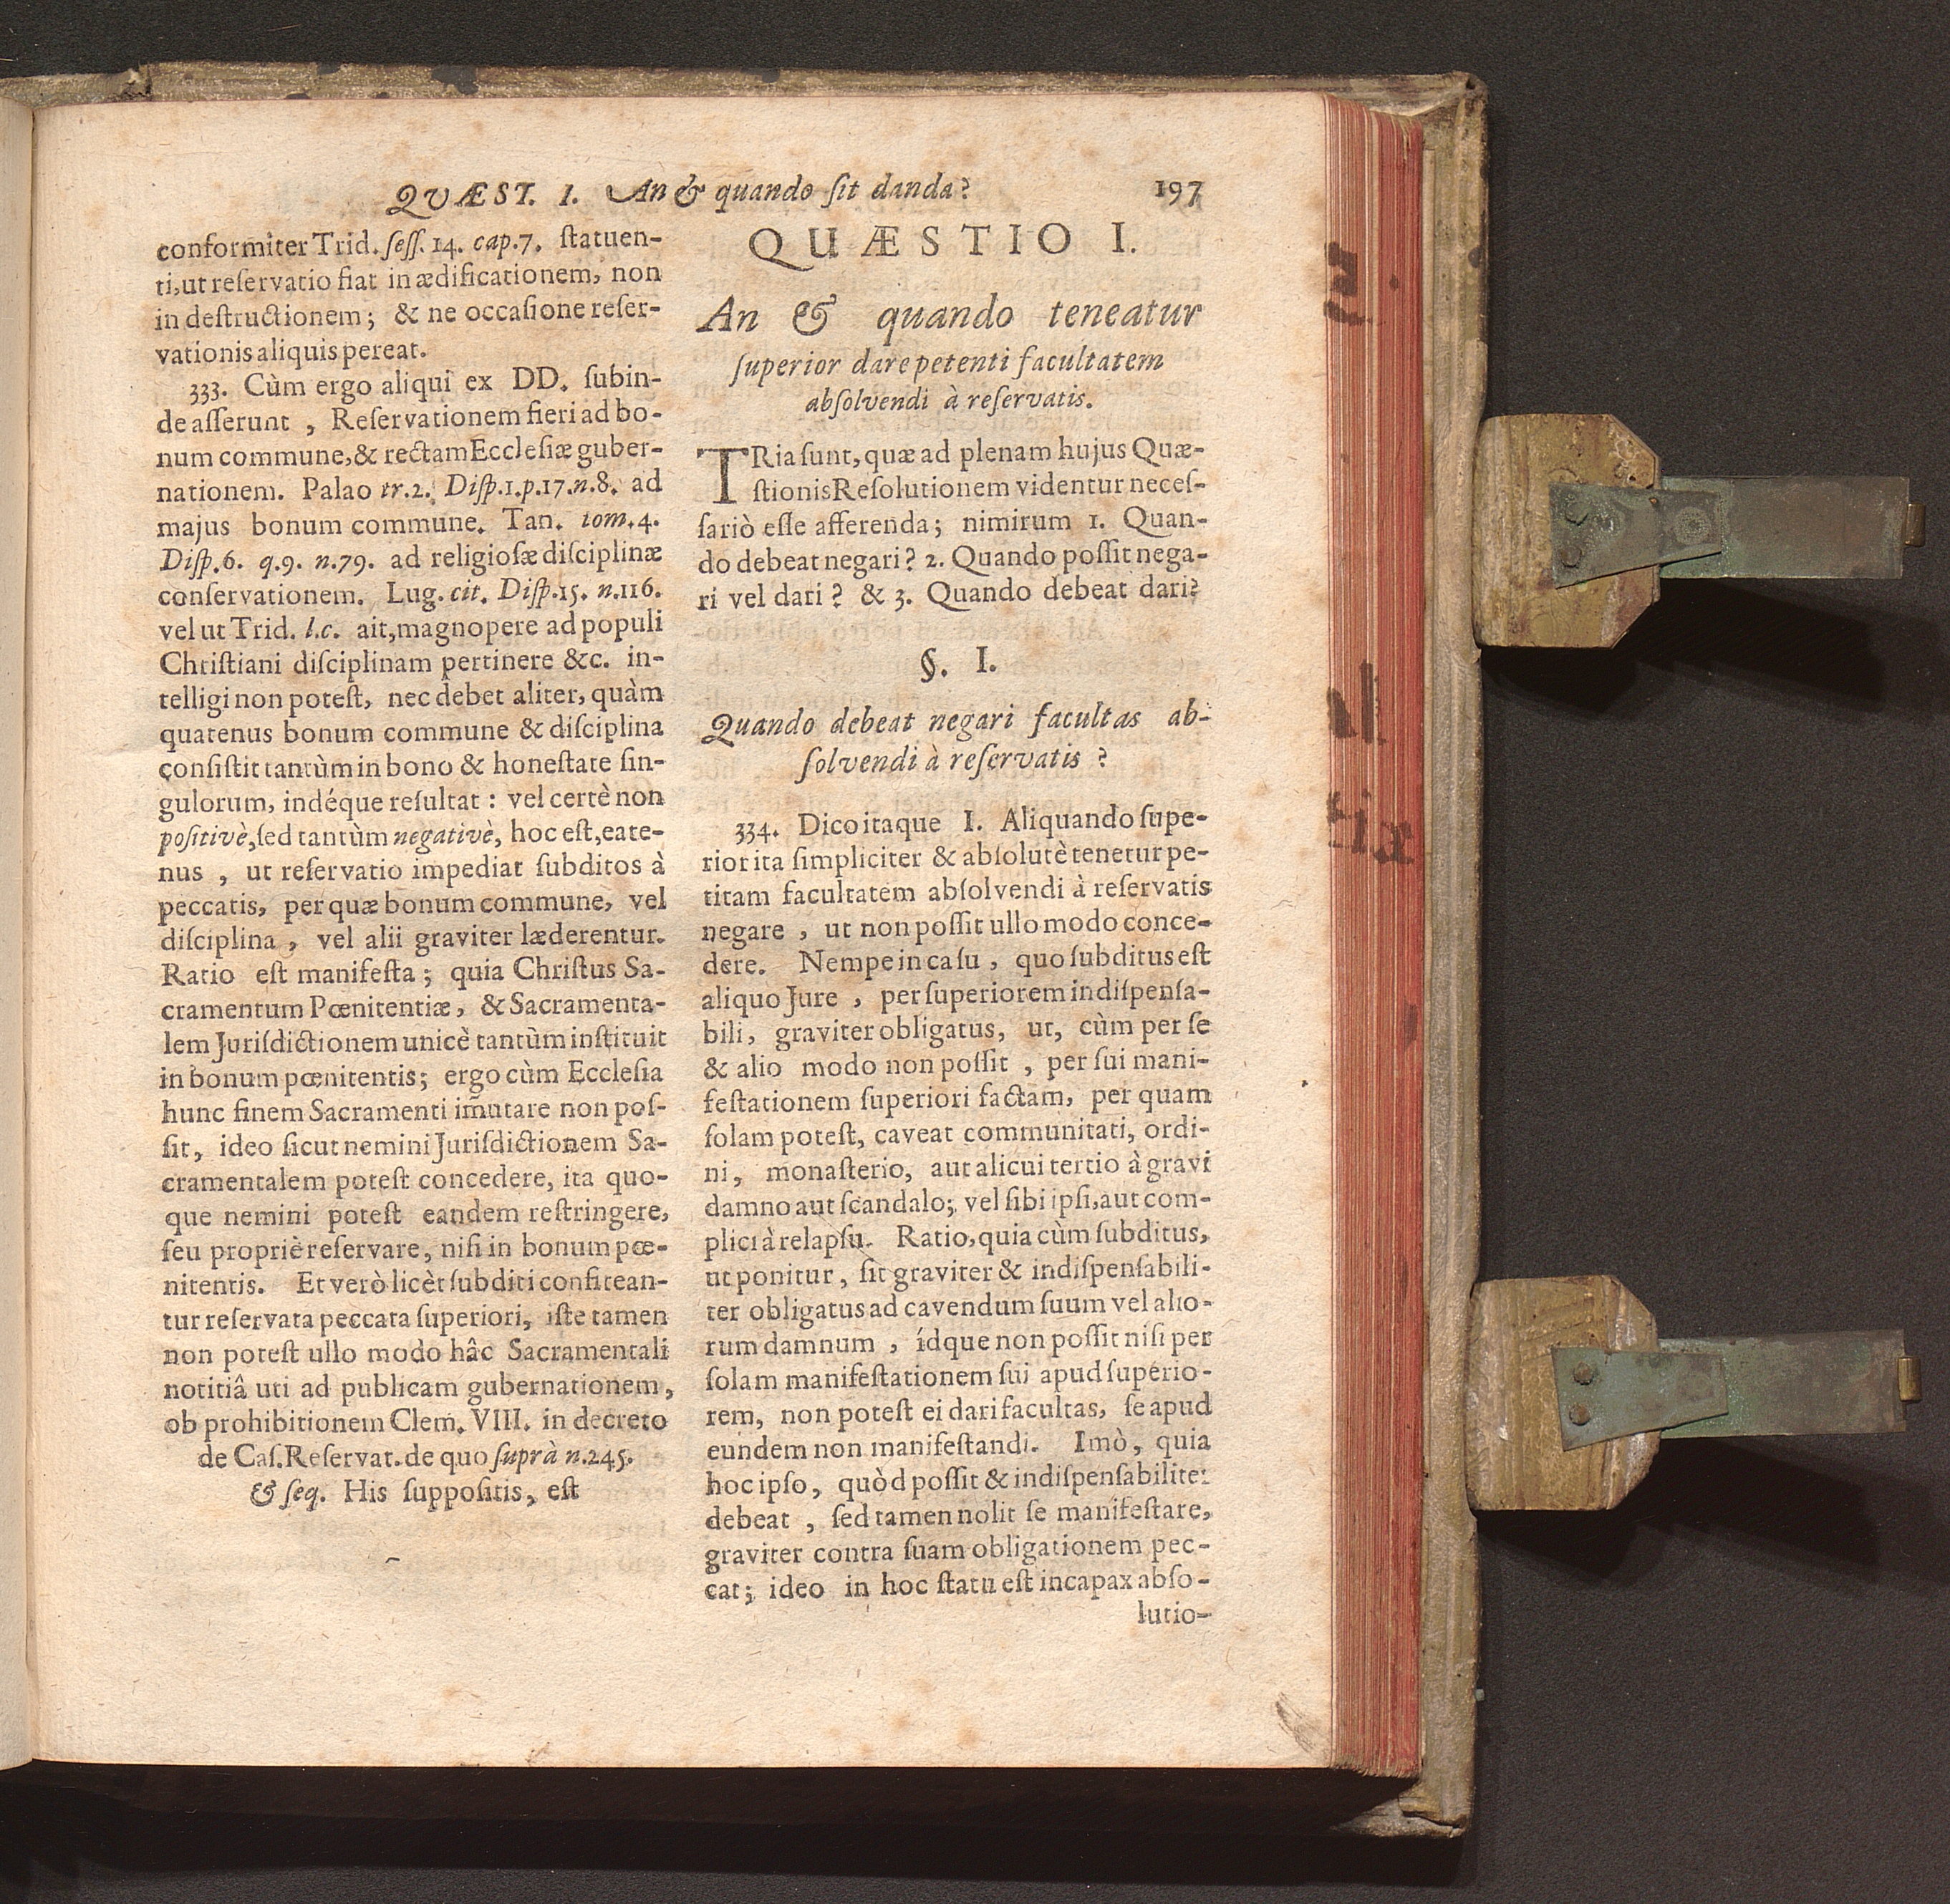 QVÆST. I. An & quando ſit danda? 197
conformiter Trid. ſeſſ. 14. cap. 7. ſtatuen-
ti, ut reſervatio fiat in ædificationem, non
in deſtructionem; & ne occaſione reſer-
vationis aliquis pereat.
333. Cùm ergo aliqui ex DD. ſubin-
de aſſerunt, Reſervationem fieri ad bo-
num commune, & rectam Eccleſiæ guber-
nationem. Palao tr.2. Diſp.1.p.17.n.8. ad
majus bonum commune. Tan. tom.4.
Diſp.6. q.9. n.79. ad religioſæ diſciplinæ
conſervationem. Lug. cit. Diſp.15. n.116.
vel ut Trid. l.c. ait, magnopere ad populi
Chriſtiani diſciplinam pertinere &c. in-
telligi non poteſt, nec debet aliter, quàm
quatenus bonum commune & diſciplina
conſiſtit tantùm in bono & honeſtate ſin-
gulorum, indéque reſultat: vel certè non
poſitivè, ſed tantùm negativè, hoc eſt, eate-
nus, ut reſervatio impediat ſubditos à
peccatis, per quæ bonum commune, vel
diſciplina, vel alii graviter læderentur.
Ratio eſt manifeſta; quia Chriſtus Sa-
cramentum Pœnitentiæ, & Sacramenta-
lem Juriſdictionem unicè tantùm inſtituit
in bonum pœnitentis; ergo cùm Eccleſia
hunc finem Sacramenti im̃utare non poſ-
ſit, ideo ſicut nemini Juriſdictionem Sa-
cramentalem poteſt concedere, ita quo-
que nemini poteſt eandem reſtringere,
ſeu propriè reſervare, niſi in bonum pœ-
nitentis. Et verò licèt ſubditi confitean-
tur reſervata peccata ſuperiori, iſte tamen
non poteſt ullo modo hâc Sacramentali
notitiâ uti ad publicam gubernationem,
ob prohibitionem Clem. VIII. in decreto
de Caſ. Reſervat. de quo ſuprà n.245.
& ſeq. His ſuppoſitis, eſt
QUÆSTIO I.
An & quando teneatur
ſuperior dare petenti facultatem
abſolvendi à reſervatis.
TRia ſunt, quæ ad plenam hujus Quæ-
ſtionis Reſolutionem videntur neceſ-
ſariò eſſe afferenda; nimirum 1. Quan-
do debeat negari? 2. Quando poſſit nega-
ri vel dari? & 3. Quando debeat dari?
§. I.
Quando debeat negari facultas ab-
ſolvendi à reſervatis?
334. Dico itaque I. Aliquando ſupe-
rior ita ſimpliciter & abſolutè tenetur pe-
titam facultatem abſolvendi à reſervatis
negare, ut non poſſit ullo modo conce-
dere. Nempe in caſu, quo ſubditus eſt
aliquo Jure, per ſuperiorem indiſpenſa-
bili, graviter obligatus, ut, cùm per ſe
& alio modo non poſſit, per ſui mani-
feſtationem ſuperiori factam, per quam
ſolam poteſt, caveat communitati, ordi-
ni, monaſterio, aut alicui tertio à gravi
damno aut ſcandalo; vel ſibi ipſi, aut com-
plici à relapſu. Ratio, quia cùm ſubditus,
ut ponitur, ſit graviter & indiſpenſabili-
ter obligatus ad cavendum ſuum vel alio-
rum damnum, ídque non poſſit niſi per
ſolam manifeſtationem ſui apud ſuperio-
rem, non poteſt ei dari facultas, ſe apud
eundem non manifeſtandi. Imò, quia
hoc ipſo, quòd poſſit & indiſpenſabiliter
debeat, ſed tamen nolit ſe manifeſtare,
graviter contra ſuam obligationem pec-
cat; ideo in hoc ſtatu eſt incapax abſo-
lutio-